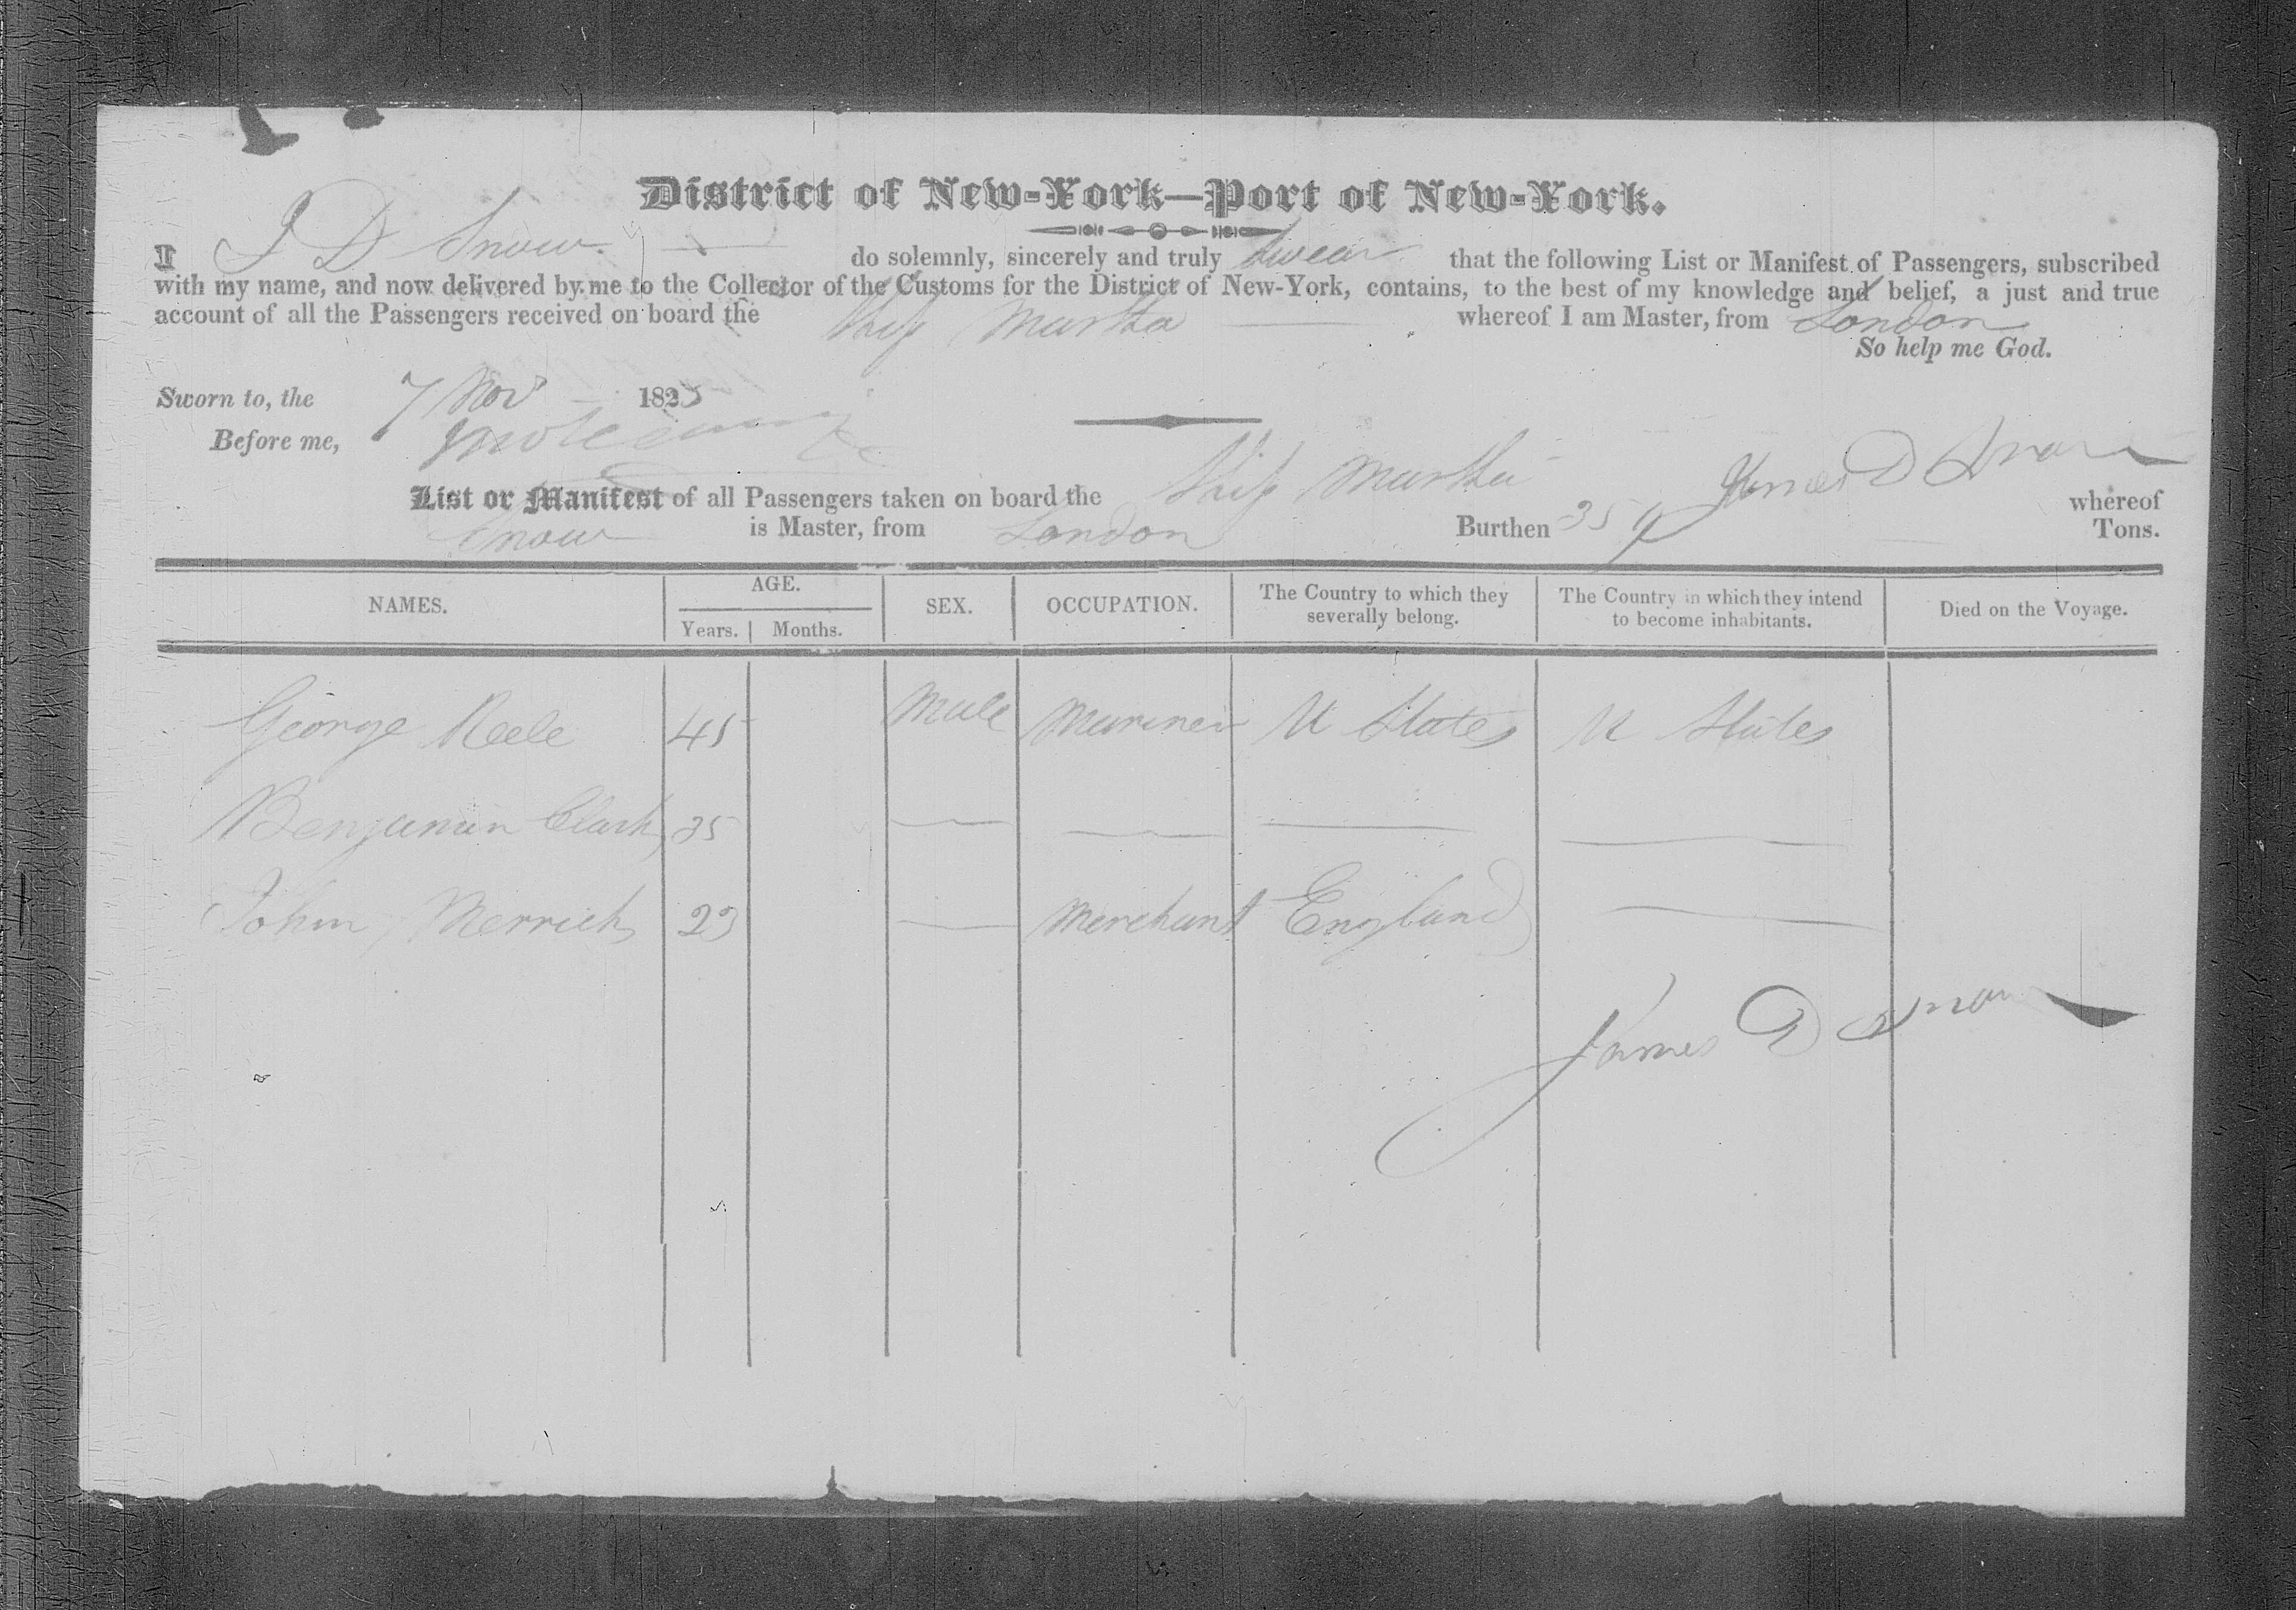 District of New-York—Port of New-York.
I J D Snow do solemnly, sincerely and truly swear that the following List or Manifest of Passengers, subscribed
with my name, and now delivered by me to the Collector of the Customs for the District of New-York, contains, to the best of my knowledge and belief, a just and true
account of all the Passengers received on board the Ship Martha whereof I am Master, from London
So help me God.
Sworn to, the 7 Nov 1825
Before me,
James D Snow
List or Manifest of all Passengers taken on board the Ship Martha whereof
Snow is Master, from London Burthen Tons.
NAMES. AGE. Years. Months. SEX. OCCUPATION. The Country to which they severally belong. The Country in which they intend to become inhabitants. Died on the Voyage.
George 45 Male Mariner U States U States
Benjamin Clark 35 — — — —
John Merrick 23 — Merchant England —
James D Snow